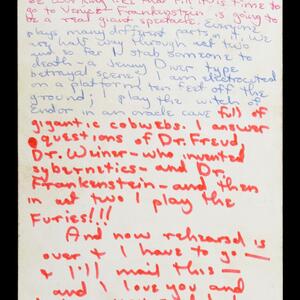 go to Venice! Frankenstein is going to
be a real giant spectacle. Everyone
plays many different parts in it. We
are half way through act two
and so far I stone someone to
death - a Jenny Diver type
betrayal scene, I am electrocuted
on a platform ten feet off the
ground; I play the witch of
Endor in an oracle cave full of
gigantic cobwebs. I answer
questions of Dr. Freud,
Dr. Weiner - who invented
cybernetics - and Dr.
Frankenstein - and then
in act two I play the
Furies!!!
And now rehearsal is
over + I have to go —
+ I'll mail this —
+ and I love you and